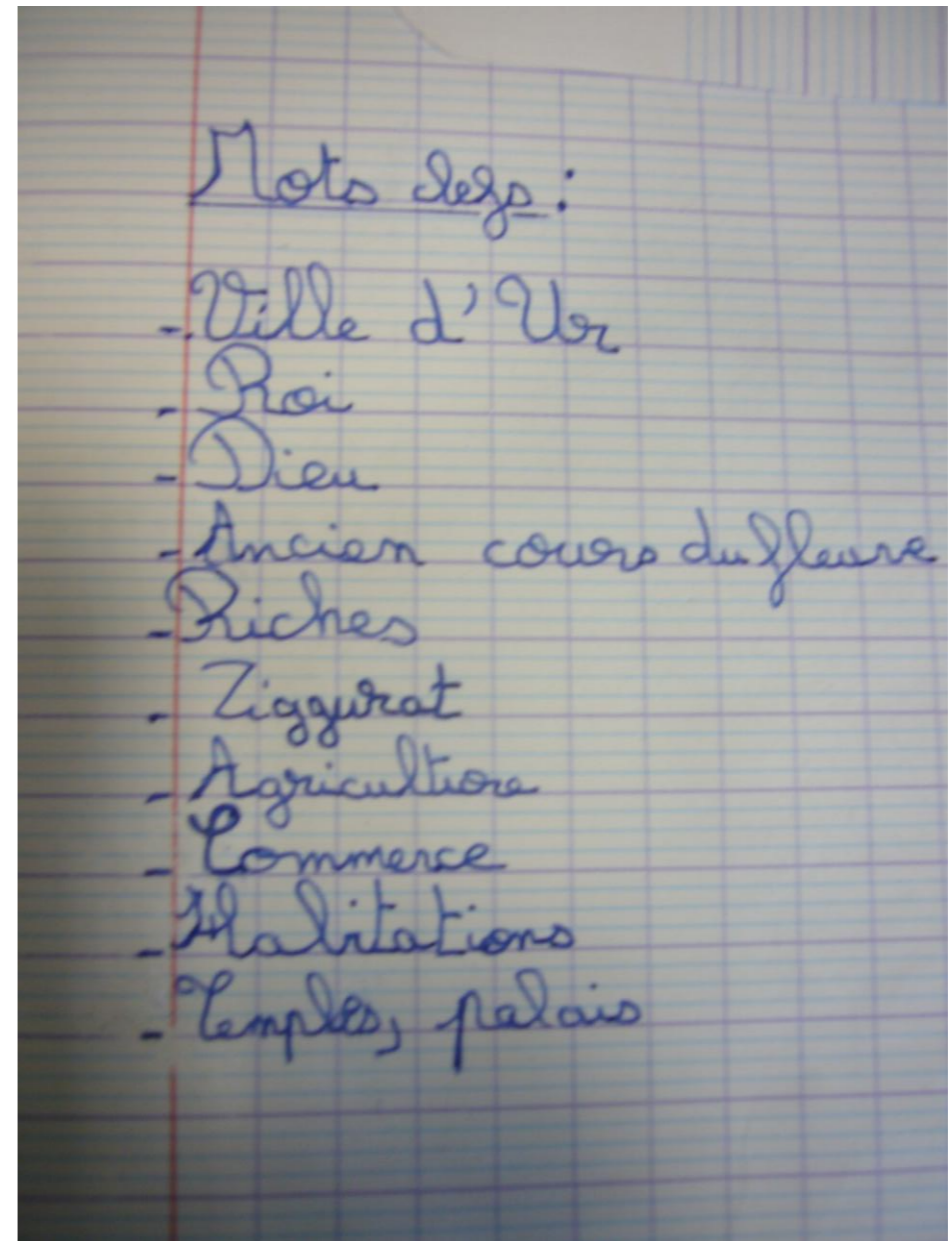 Mots clefs :
- Ville d'Ur
- Roi
- Dieu
- Ancien cours du fleuve
- Riches
- Ziggurat
- Agriculture
- Commerce
- Habitations
- Temples, palais